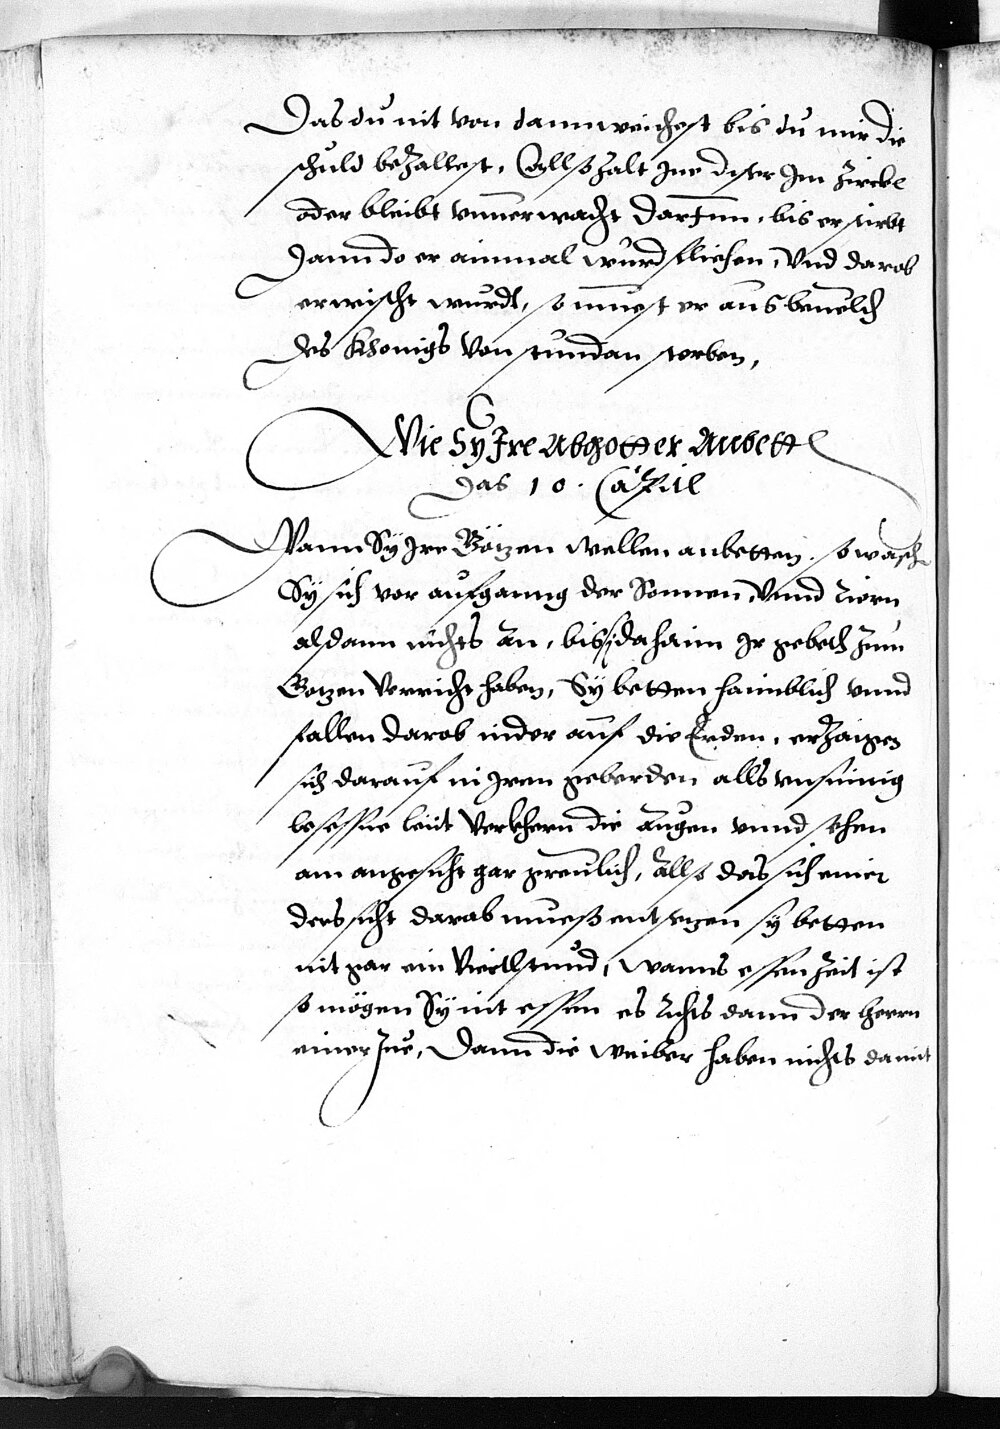 Das du nit von dann weichest bis du mir die
schuld bezallest, Allso zalt Ine diser Im Zirckl
oder bleibt vnnerwacht darInn, bis er stirbt
Dann do er ainmal wurd fliehen, Vnd darob
erwischt wurdt, so muest er aus beuelch
des Khonigs Von stundan sterben,
Wie Sy Ire Abgotter Anbett
Das 10. Capitl
Wann Sy Ire Götzen wellen anbetten, so wasch
Sy sich vor aufganng der Sonnen, Vnnd Riern
alsdann nichts An, bis dahaim Ir gebeth zum
Gotzen Verricht haben, Sy betten haimblich vnnd
fallen darob nider auf die Erden, erzaigen
sich darauf in Iren geberden alls vnsinnig
besessne leüt Verkhern die Augen vnnd sehen
am angesicht gar greulich, Allso das sich einer
ders sicht darab mueß entsetzen sy betten
nit gar ein Viertlstund, Wanns essen Zeit ist
so mögen Sy nit essen es dann der herrn
einer Ine, Dann die weiber haben nichts damit